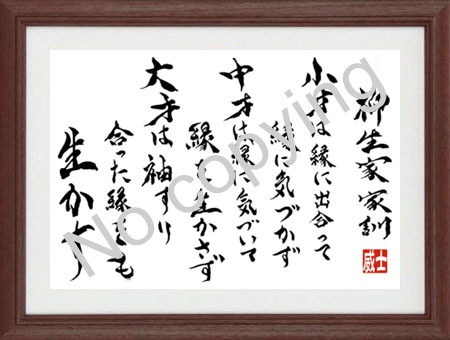 柳生家家訓
小才は縁に出合って
縁に気づかず
中才は縁に気づいて
縁を生かさず
大才は袖すり
合った縁をも
生かす
威士
No copying